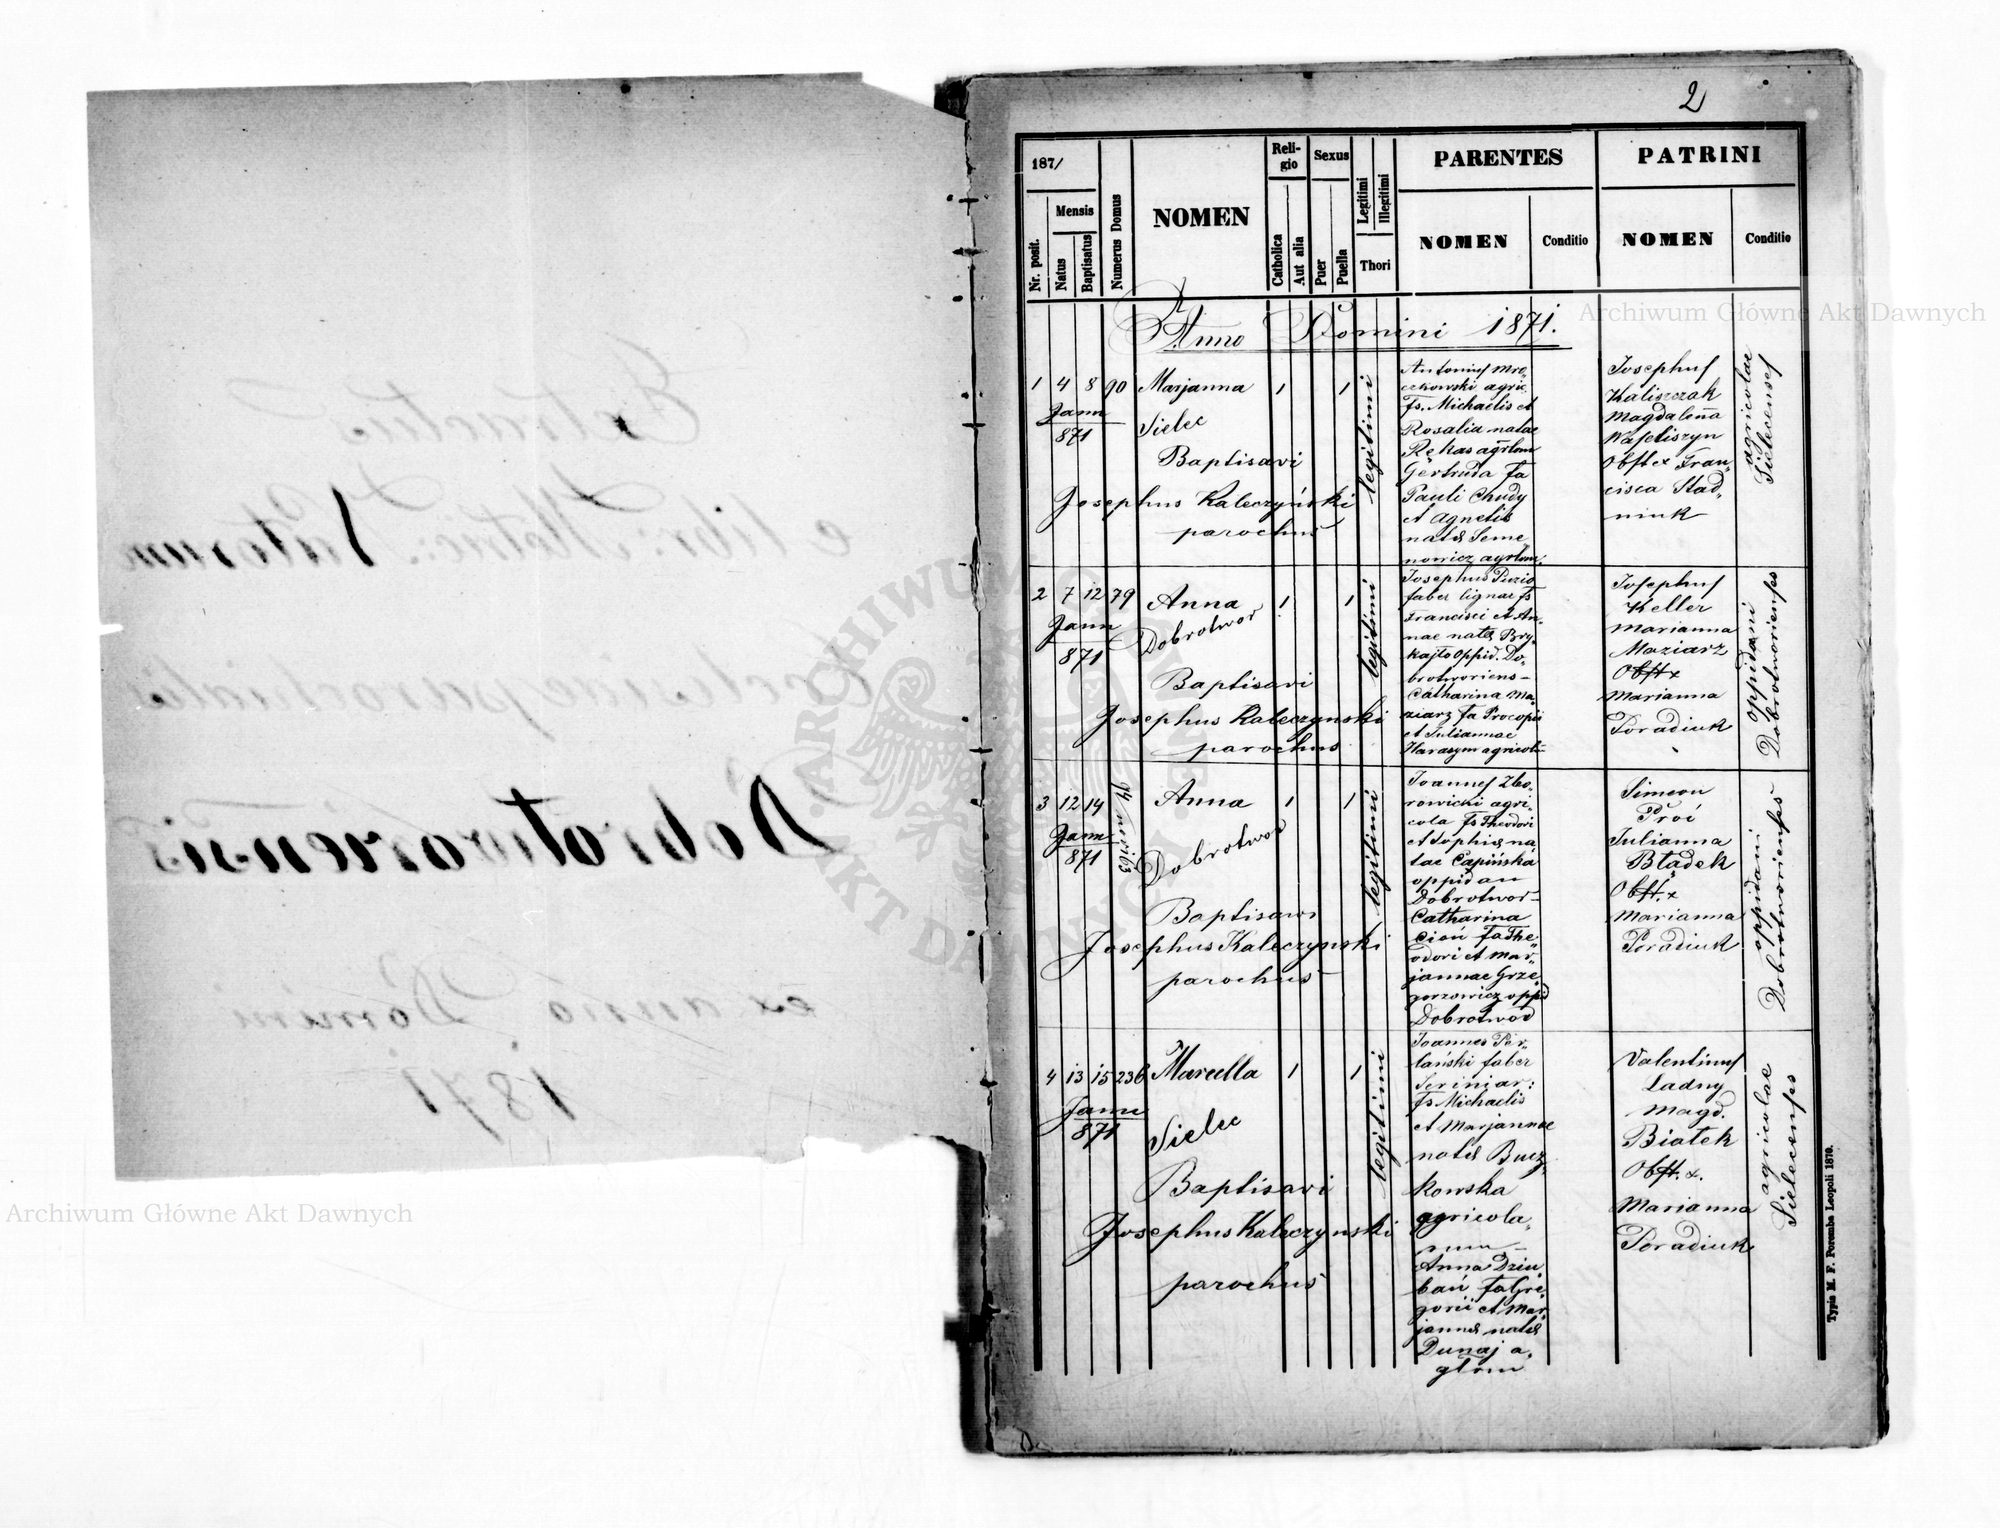 Extractus
e libr: Metric: Natorum
Ecclesiae parochialis
Dobrotworiensis
ex anno Domini
1871
2
1871
Mensis
Nr. posit.
Natus
Baptisatus
Numerus Domus
NOMEN
Religio
Catholica
Aut alia
Sexus
Puer
Puella
Legitimi
Illegitimi
Thori
PARENTES
NOMEN
Conditio
PATRINI
NOMEN
Conditio
Anno Domini 1871.
1 4 8 90
Janu
871
Marjanna
Sielec
Baptisavi
Josephus Kaleczyński
parochus
1 1
legitimi
Antonius Mro-
czkowski agric
fs. Michaelis et
Rosalia natae
Rękas agrlom
Gertruda fa
Pauli Chudy
et Agnetis
natis Seme
nowicz agrlom.
Josephus
Kaliszczak
Magdalena
Waseliszyn
Obst x Fran
cisca Stad
niuk
agricolae
Sielecenses
2 7 12 79
Janu
871
Anna
Dobrotwor
Baptisavi
Josephus Kaleczynski
parochus
1 1
legitimi
Josephus Puzio
faber lignar fs
Francisci et An-
nae natis Bry
kajto Oppid. Do-
brotworiens-
Catharina Ma
ziarz fa Procopii
et Juliannae
Harasym agricol-
Josephus
Keller
Marianna
Maziarz
Obst x
Marianna
Poradiuk
oppidani
Dobrotworienses
3 12 14
Janu
871
Anna
Dobrotwor
Baptisavi
Josephus Kaleczynski
parochus
1 1
legitimi
Joannes Zbo-
rowicki agri-
cola fs Theodori
et Sophiis na
tae Capińska
oppidan
Dobrotwor-
Catharina
Cioń fa The
odori et Mar
jannae Grze
gorzowicz oppid
Dobrotwor
Simeon
Prói
Julianna
Bładek
Obst. x
Marianna
Poradiuk
oppidani
Dobrotworienses
4 13 15 236
Janu
871
Marcella
Sielec
Baptisavi
Josephus Kaleczynski
parochus
1 1
legitimi
Joannes Per-
łański faber
Seriniar:
fs Michaelis
et Marjannae
natis Bucz
kowska
agricola
rum -
Anna Dziu
bań fa Gre
gorii et Mar
jannis natis
Dunaj a
głom
Valentinus
Ladny
Magd.
Białek
Obst. x.
Marianna
Poradiuk
agricolae
Sielecenses
Typis M. F. Poremba Leopoli 1870.
Archiwum Główne Akt Dawnych
Archiwum Główne Akt Dawnych
ARCHIWUM GŁÓWNE AKT DAWNYCH